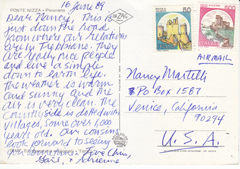 PONTE NIZZA - Panorama
16 June 89
Dear Nancy, This is
just down the road
from where our relatives
are in Trebbiano. They
are really nice people
and live a simple
down to earth life.
The weather is warm
and sunny and the
air is very clean. The
country side is dotted with
villages some over 1,000
years old. Our cousins
look forward to seeing
Love Chris,
Gail, Adrienne
AIRMAIL
Nancy Martelli
PO Box 1587
Venice, California
90294
U.S.A.